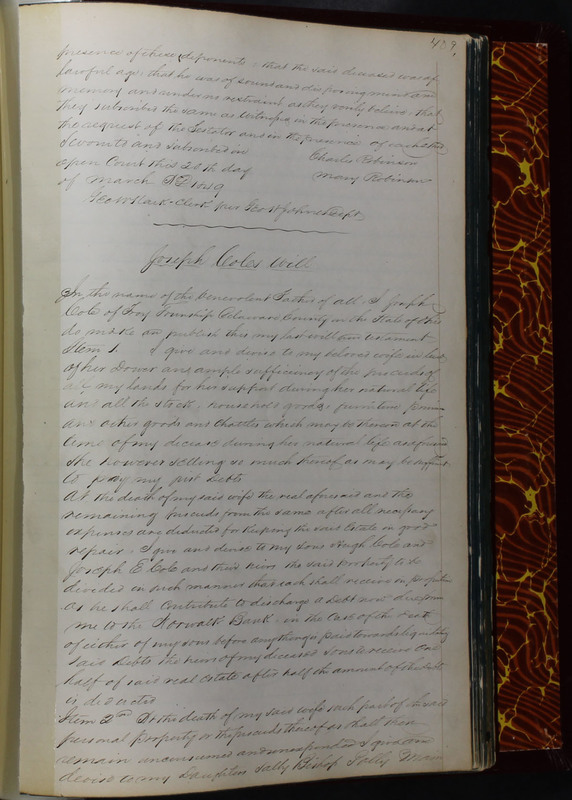 439,
presence of these deponents, that the said deceased was of
lawful age; that he was of sound and disposing mind and
memory and under no restraint, as they verily believe, that
they subscribed the same as witnesses in the presence and at
the request of the Testator and in the presence of each other
Sworn to and subscribed in Charles Robinson
open Court this 20th day Mary Robinson
of March AD 1849
Geo W Clerk per Geo W Dept
Joseph Coles Will
In the name of the Benevolent Father of all. I Joseph
Cole of Troy Township Delaware County in the State of Ohio
do make and publish this my last will and testament
Item 1. I give and devise to my beloved wife in lieu
of her Dower an ample sufficiency of the proceeds of
all my lands for her support during her natural life
and all the stock, household goods, furniture
and other goods and chattles which may be thereon at the
time of my decease during her natural life as aforesaid
she however selling so much thereof as may be
to pay my just debts
At the death of my said wife the real aforesaid and the
remaining proceeds from the same after all necessary
expenses are deducted for keeping the said Estate in good
repair, I give and devise to my sons Hugh Cole and
Joseph E. Cole and their heirs the said property to be
divided in such manner that each shall receive in proportion
as he shall contribute to discharge a Debt now due from
me to the Norwalk Bank, in the case of the death
of either of my sons before anything is paid towards liquidating
said Debts the heirs of my deceased sons to receive one
half of said real estate after half the amount of the debt
is deducted
Item 2nd At the death of my said wife such part of the said
personal property or the proceeds thereof as shall then
remain unconsumed and unexpended I give and
devise to my Daughters Sally Bishop